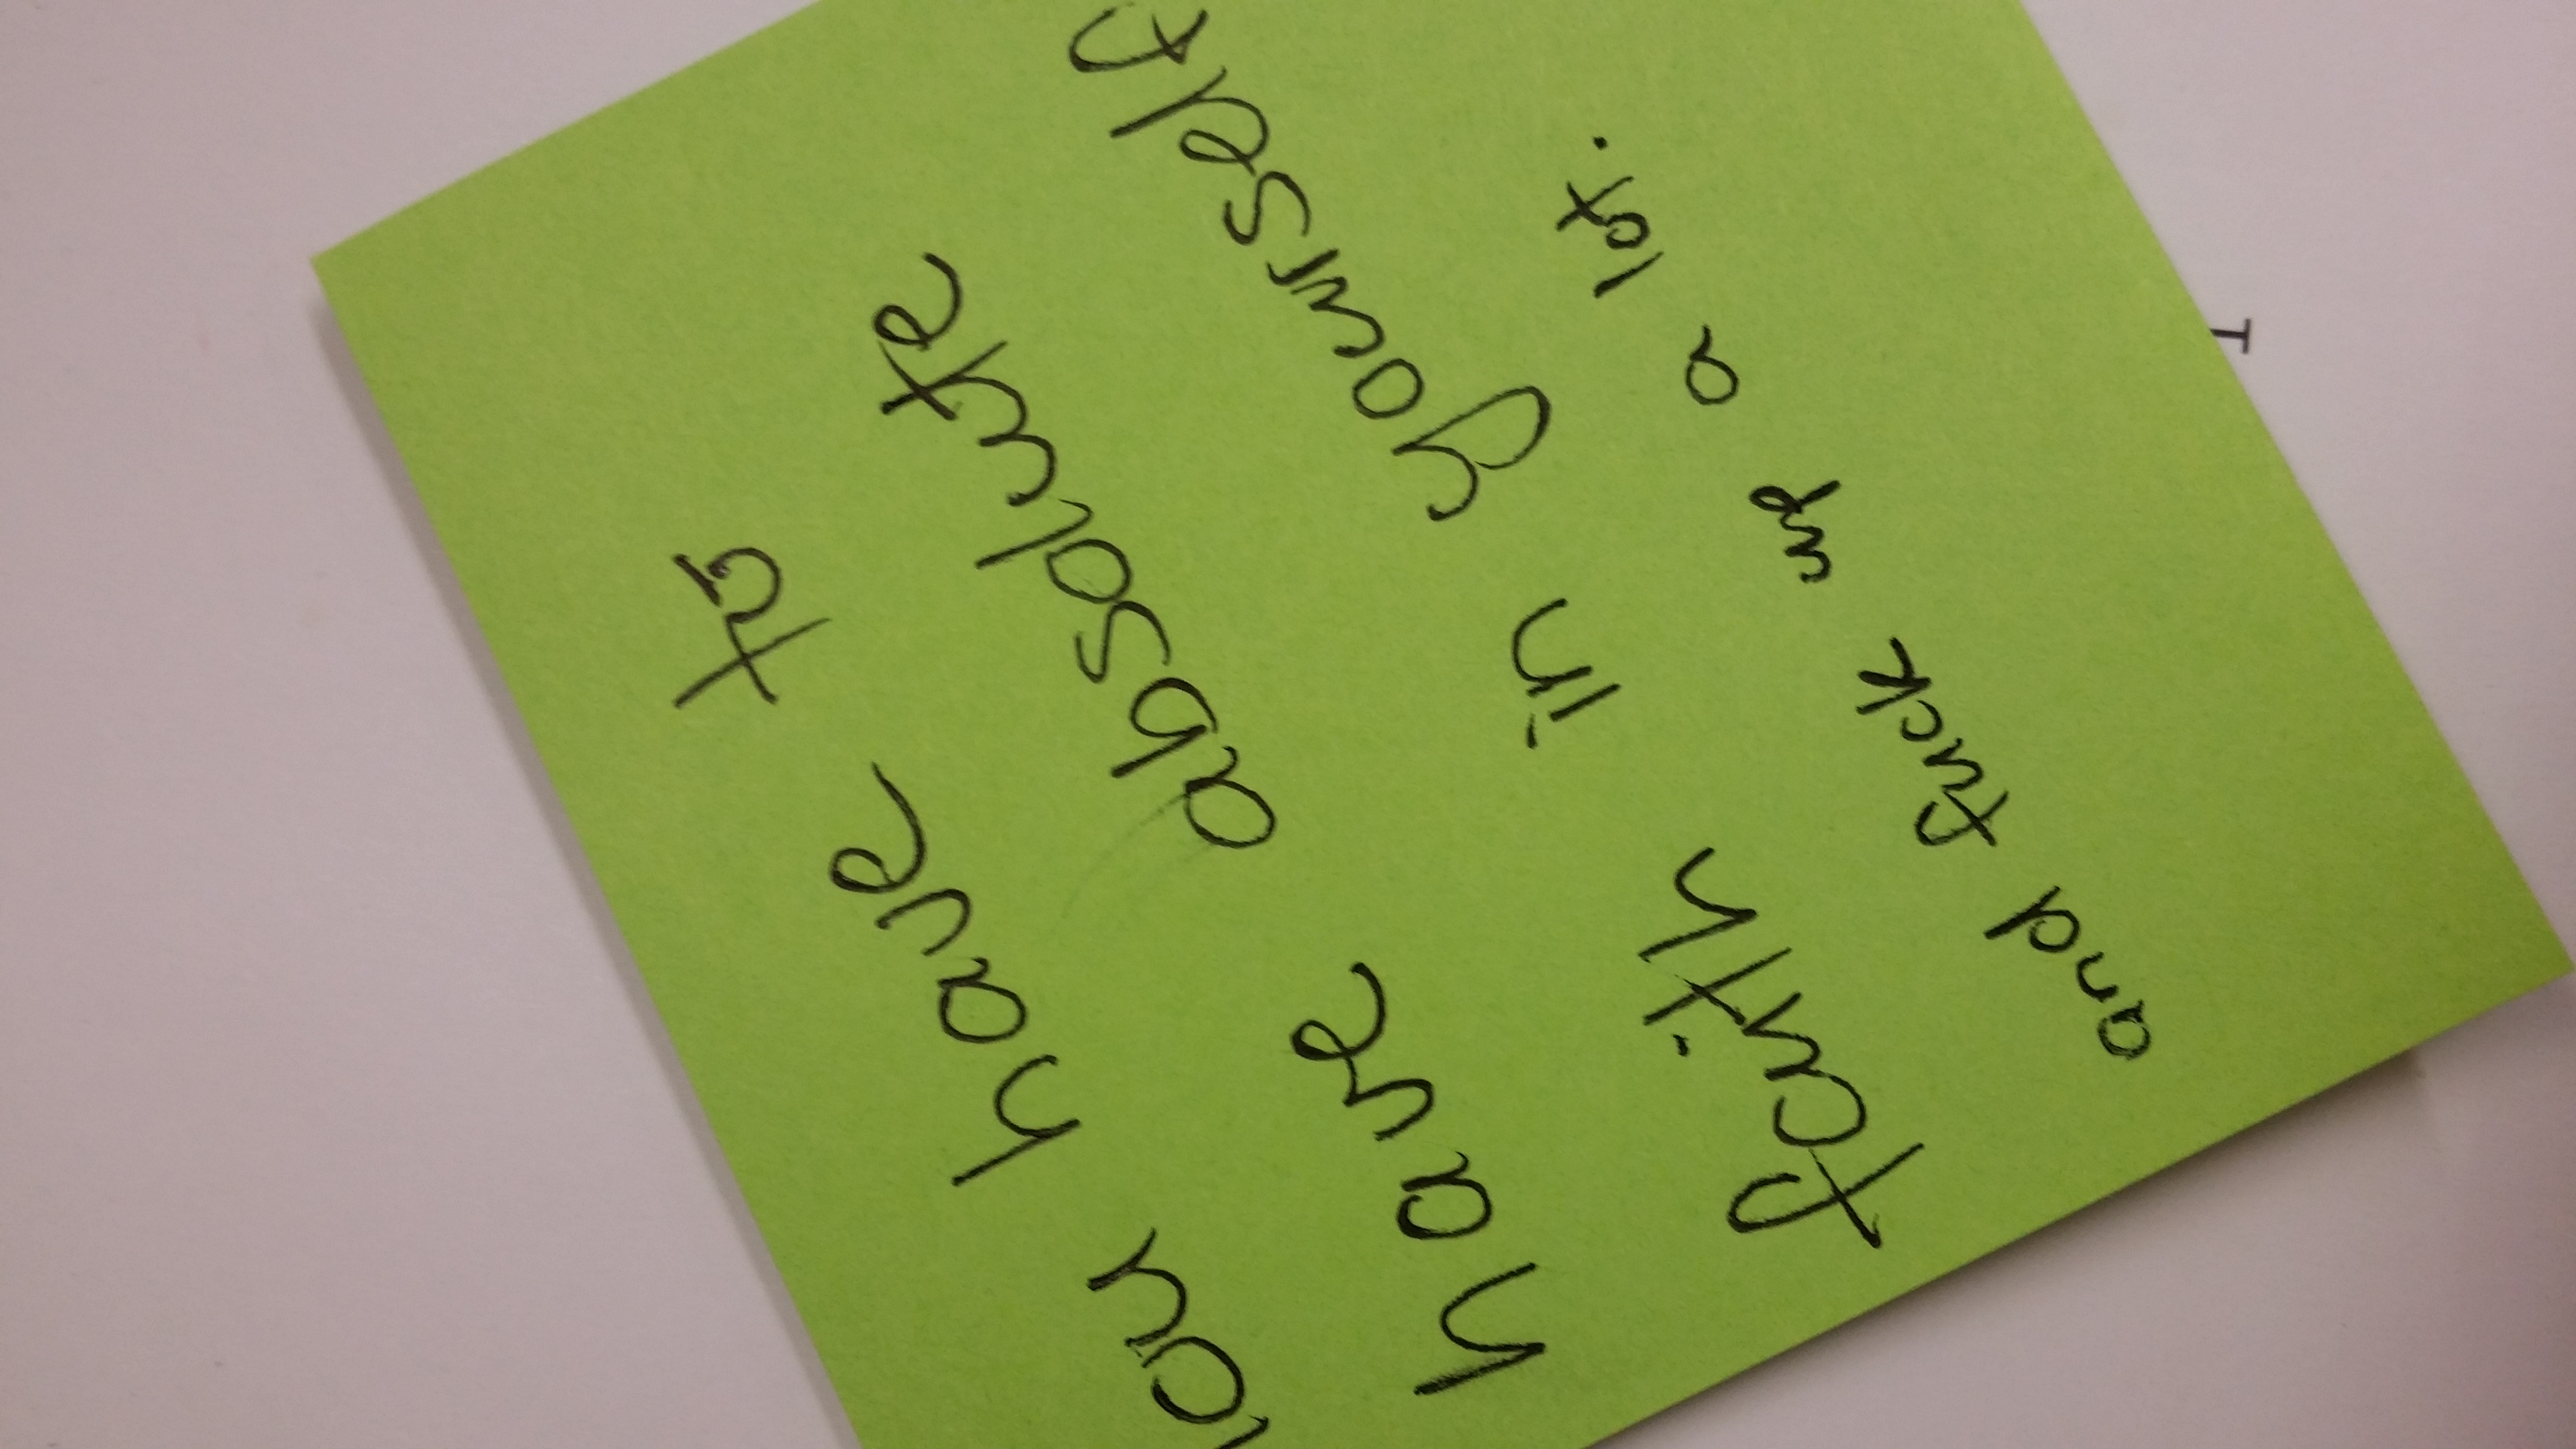 You have to
have absolute
faith in yourself
and fuck up a lot.
I